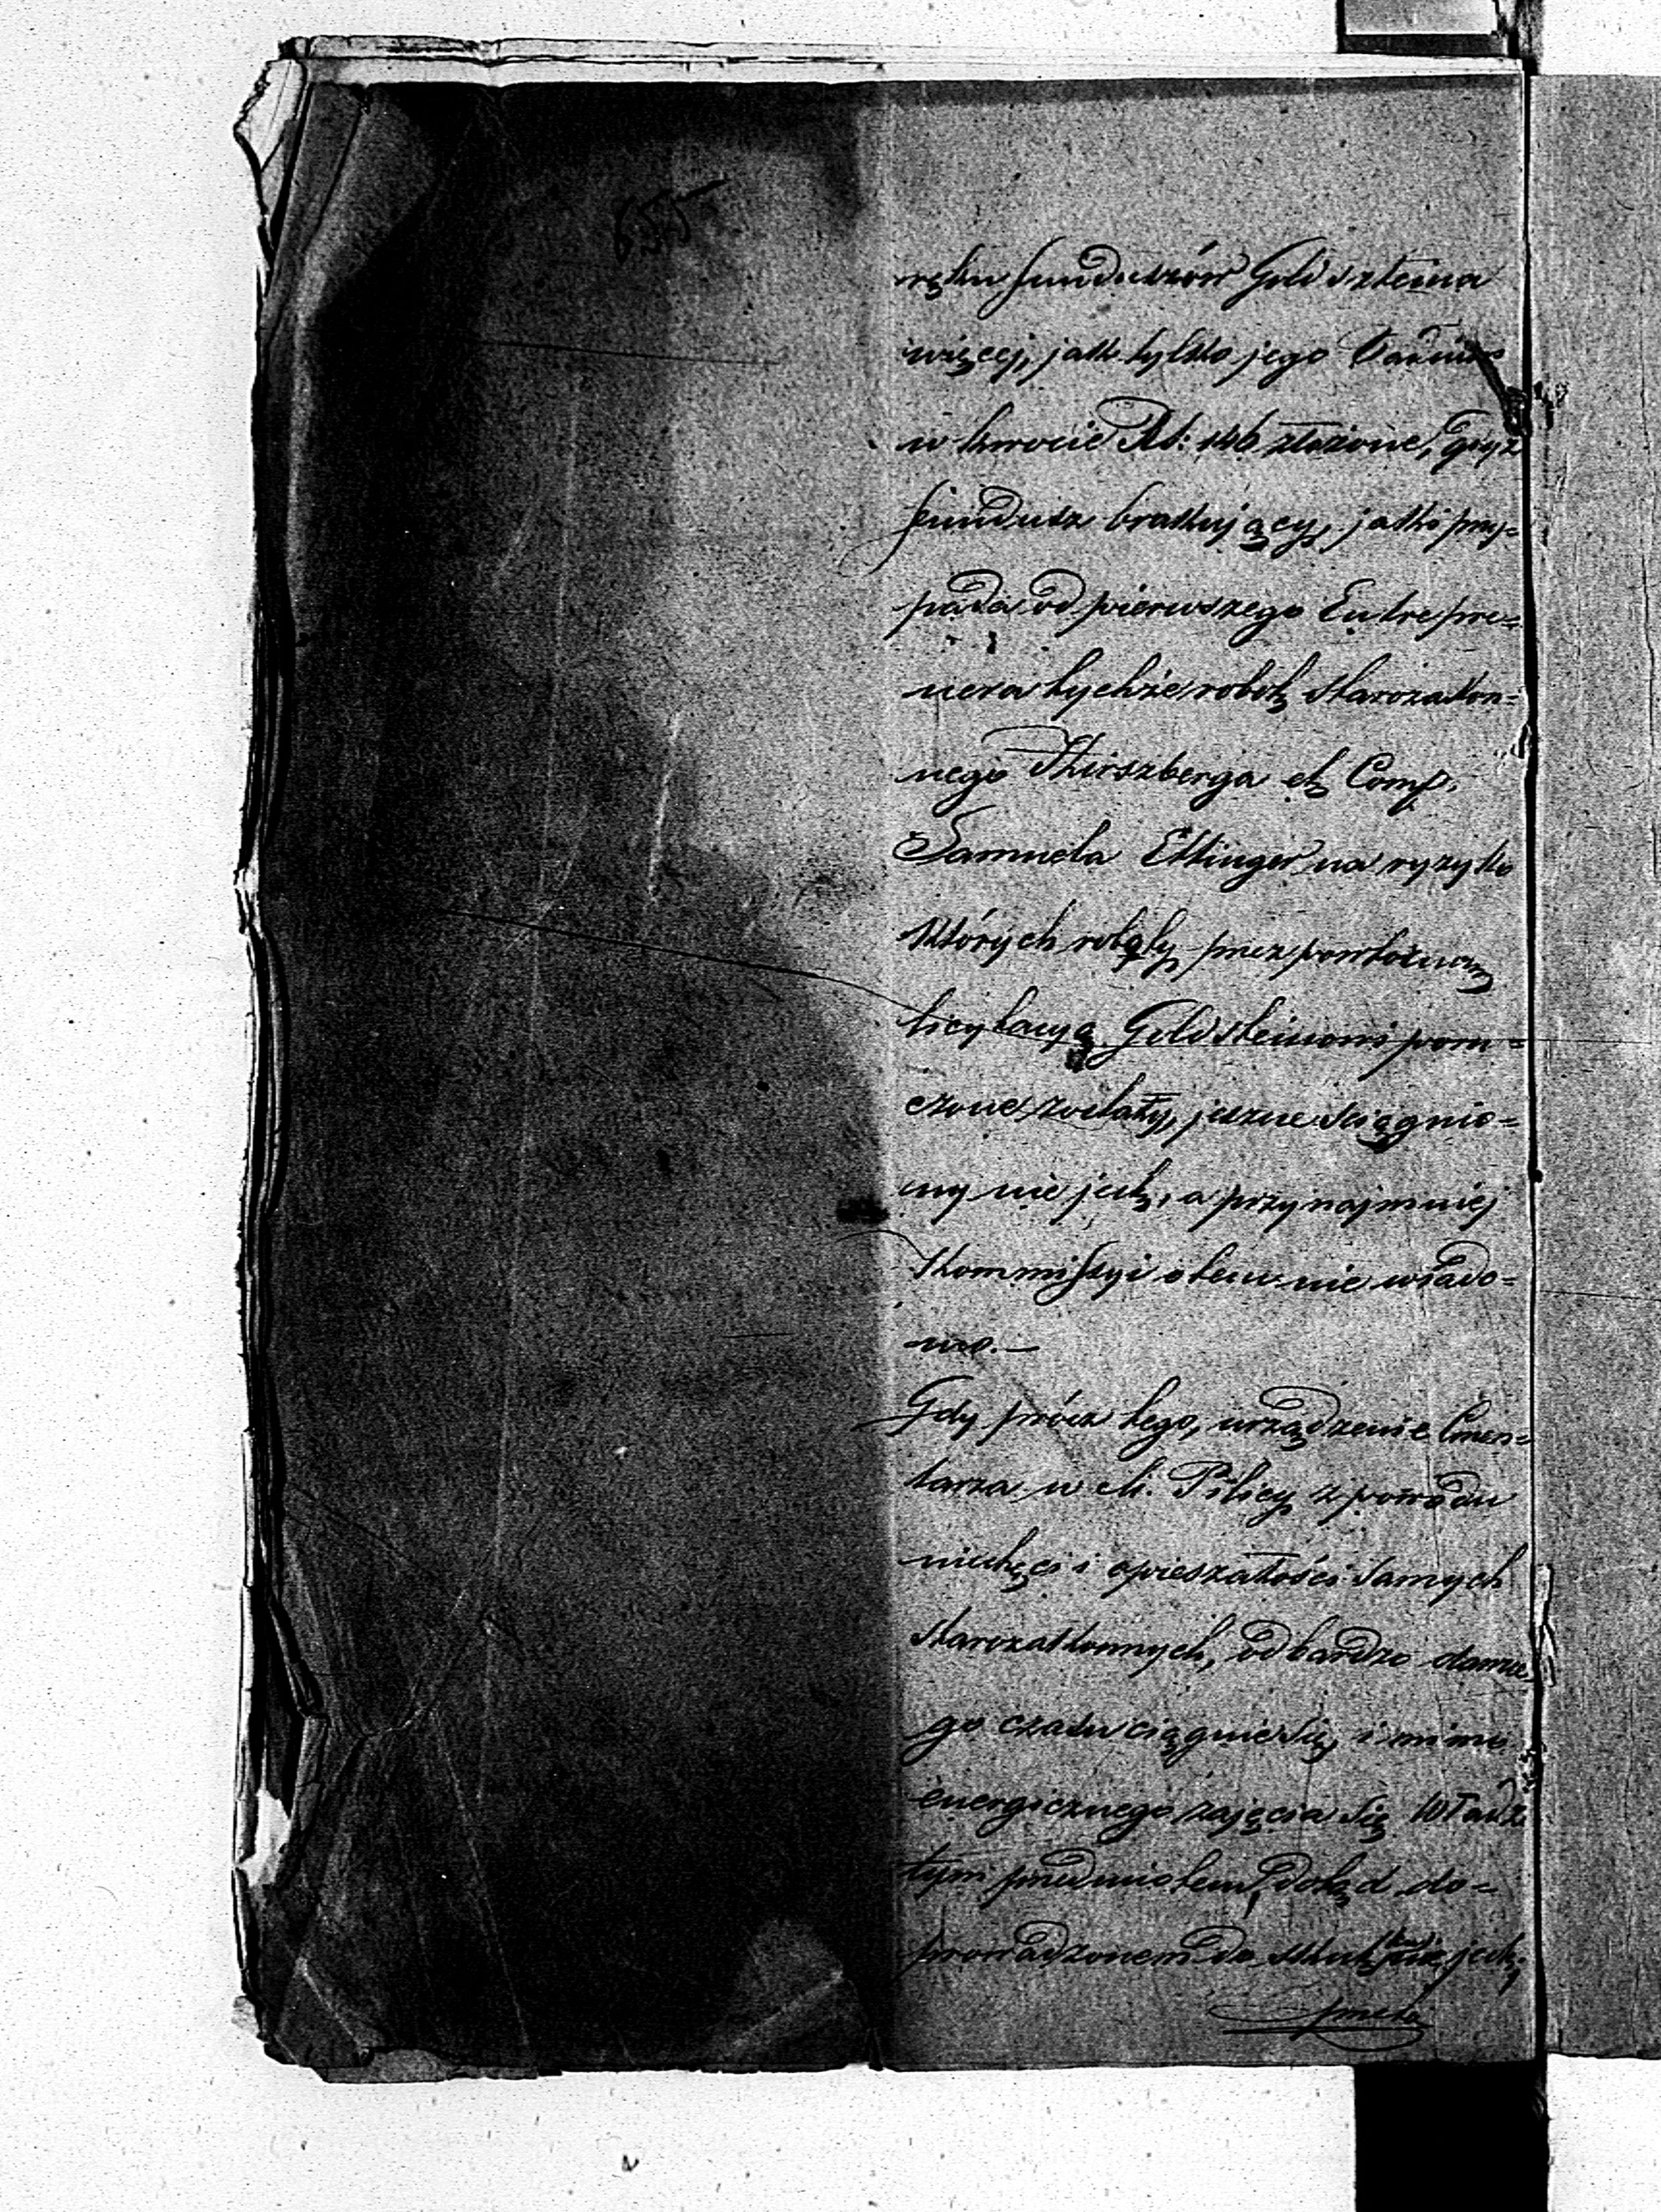 655
ręku funduszów Goldszteina
więcej, jak tylko jego Vadium
w kwocie Rb: 146 złożone, gdyż
fundusz brakujący, jaki przy-
pada od pierwszego Entrepre-
nera tychże robot starozakon-
nego Hirszberga et Comp.
Samuela Ettinger na ryzyko
których roboty przez powtórną
licytacyą Goldsteinowi poru-
czone zostały, jeszcze ściągnio-
ny nie jest, a przynajmniej
Kommissyi o tem nie wiado-
mo. —
Gdy prócz tego, urządzenie Cmen-
tarza w M. Pilicy z powodu
niechęci i opieszałości samych
starozakonnych, od bardzo dawne
go czasu ciągnie się, i mimo
energicznego zajęcia się Władz
tym przedmiotem, dotąd do-
prowadzonem do skutku nie jest;